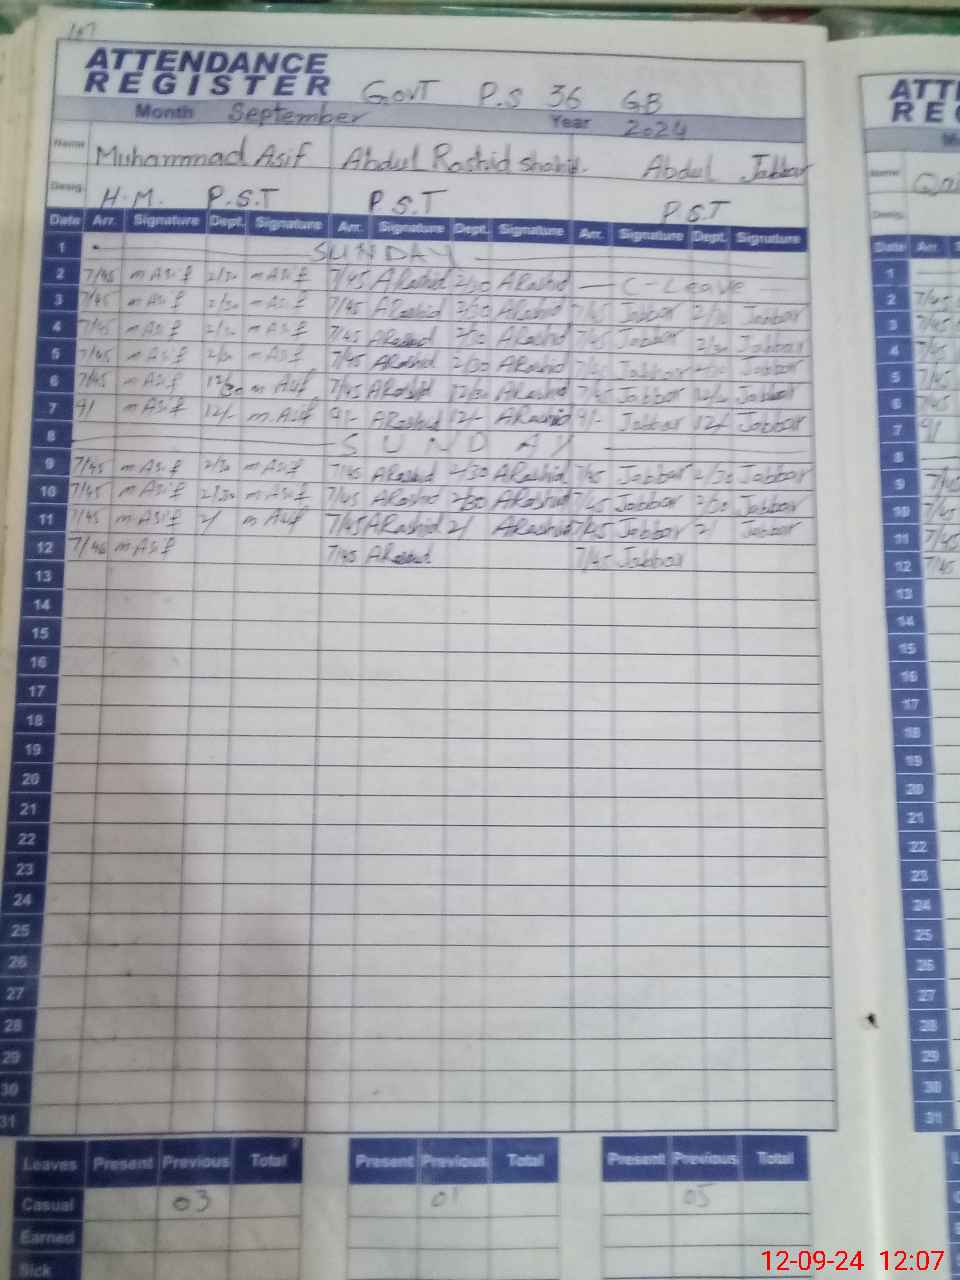 ATTENDANCE
REGISTER GOVT P.S 36 GB
Month September Year 2024
Name Muhammad Asif Abdul Rashid Shahid. Abdul Jabbar
Desig. H.M. P.S.T P.S.T P.S.T
Date Arr. Signature Dept. Signature Arr. Signature Dept. Signature Arr. Signature Dept. Signature
1 SUNDAY
2 7/45 m Asif 2/30 m Asif 7/45 ARashid 2/30 ARashid C-Leave
3 7/45 m Asif 2/30 m Asif 7/45 ARashid 2/30 ARashid 7/45 Jabbar 2/30 Jabbar
4 7/45 m Asif 2/30 m Asif 7/45 ARashid 2/30 ARashid 7/45 Jabbar 2/30 Jabbar
5 7/45 m Asif 2/30 m Asif 7/45 ARashid 2/30 ARashid 7/45 Jabbar 2/30 Jabbar
6 7/45 m Asif 12/30 m Asif 7/45 ARashid 12/30 ARashid 7/45 Jabbar Jabbar
7 9/ m Asif 12/- m. Asif 9/- ARashid 12/- ARashid 9/- Jabbar 12/- Jabbar
8 SUNDAY
9 7/45 m Asif 2/30 m Asif 7/45 ARashid 2/30 ARashid 7/45 Jabbar 2/30 Jabbar
10 7/45 m Asif 2/30 m Asif 7/45 ARashid 2/30 ARashid 7/45 Jabbar 2/30 Jabbar
11 7/45 m Asif 2/ m Asif 7/45 ARashid 2/ ARashid 7/45 Jabbar 2/ Jabbar
12 7/46 m Asif 7/45 ARashid 7/45 Jabbar
13
14
15
16
17
18
19
20
21
22
23
24
25
26
27
28
29
30
31
Leaves Present Previous Total Present Previous Total Present Previous Total
Casual 03 01 05
Earned
Sick
ATT
RE
Name
Desig.
Date Arr.
1
2 7/45
3 7/45
4 7/45
5 7/45
6 7/45
7 9/
8
9 7/45
10 7/45
11 7/45
12 7/45
13
14
15
16
17
18
19
20
21
22
23
24
25
26
27
28
29
30
31
12-09-24 12:07